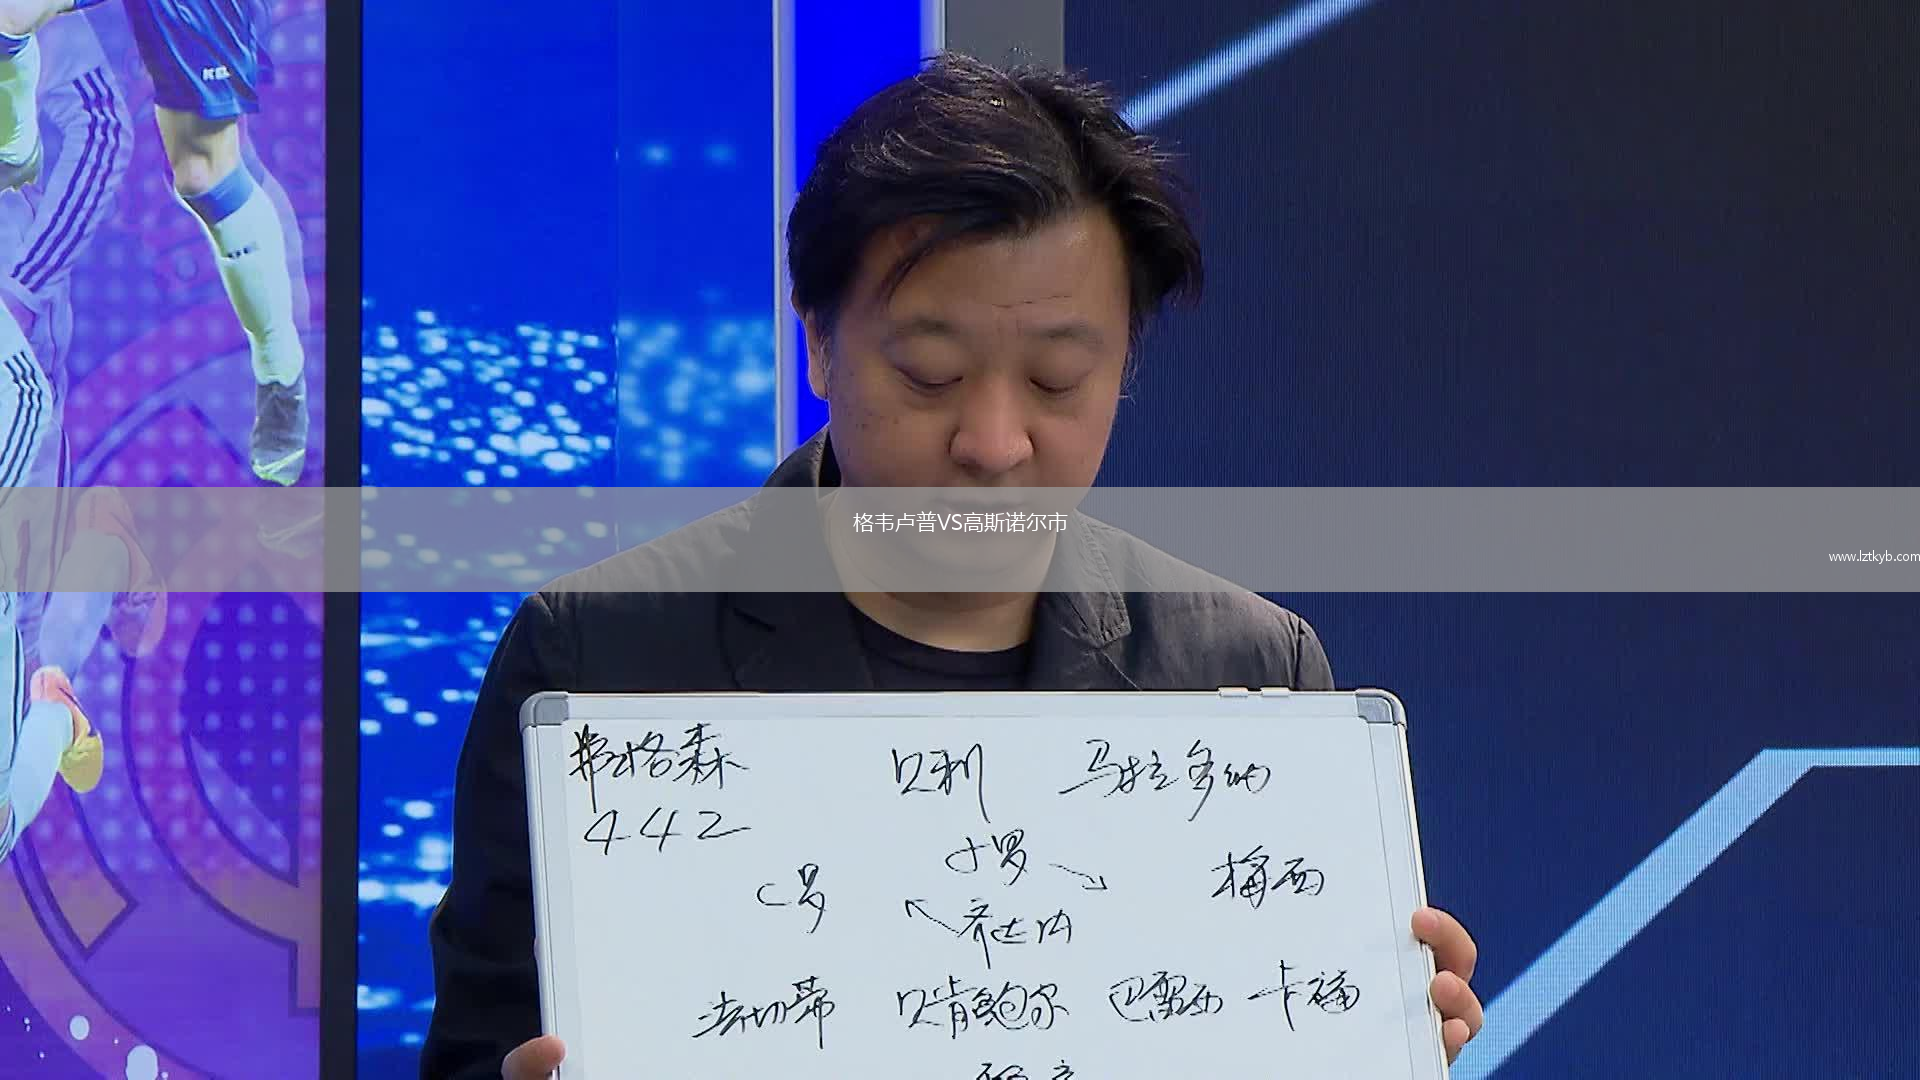 KELME
格韦卢普VS高斯诺尔市
www.lztkyb.com
弗格森 贝利 马拉多纳
442
小罗
C罗 梅西
齐达内
法切蒂 贝肯鲍尔 巴雷西 卡福